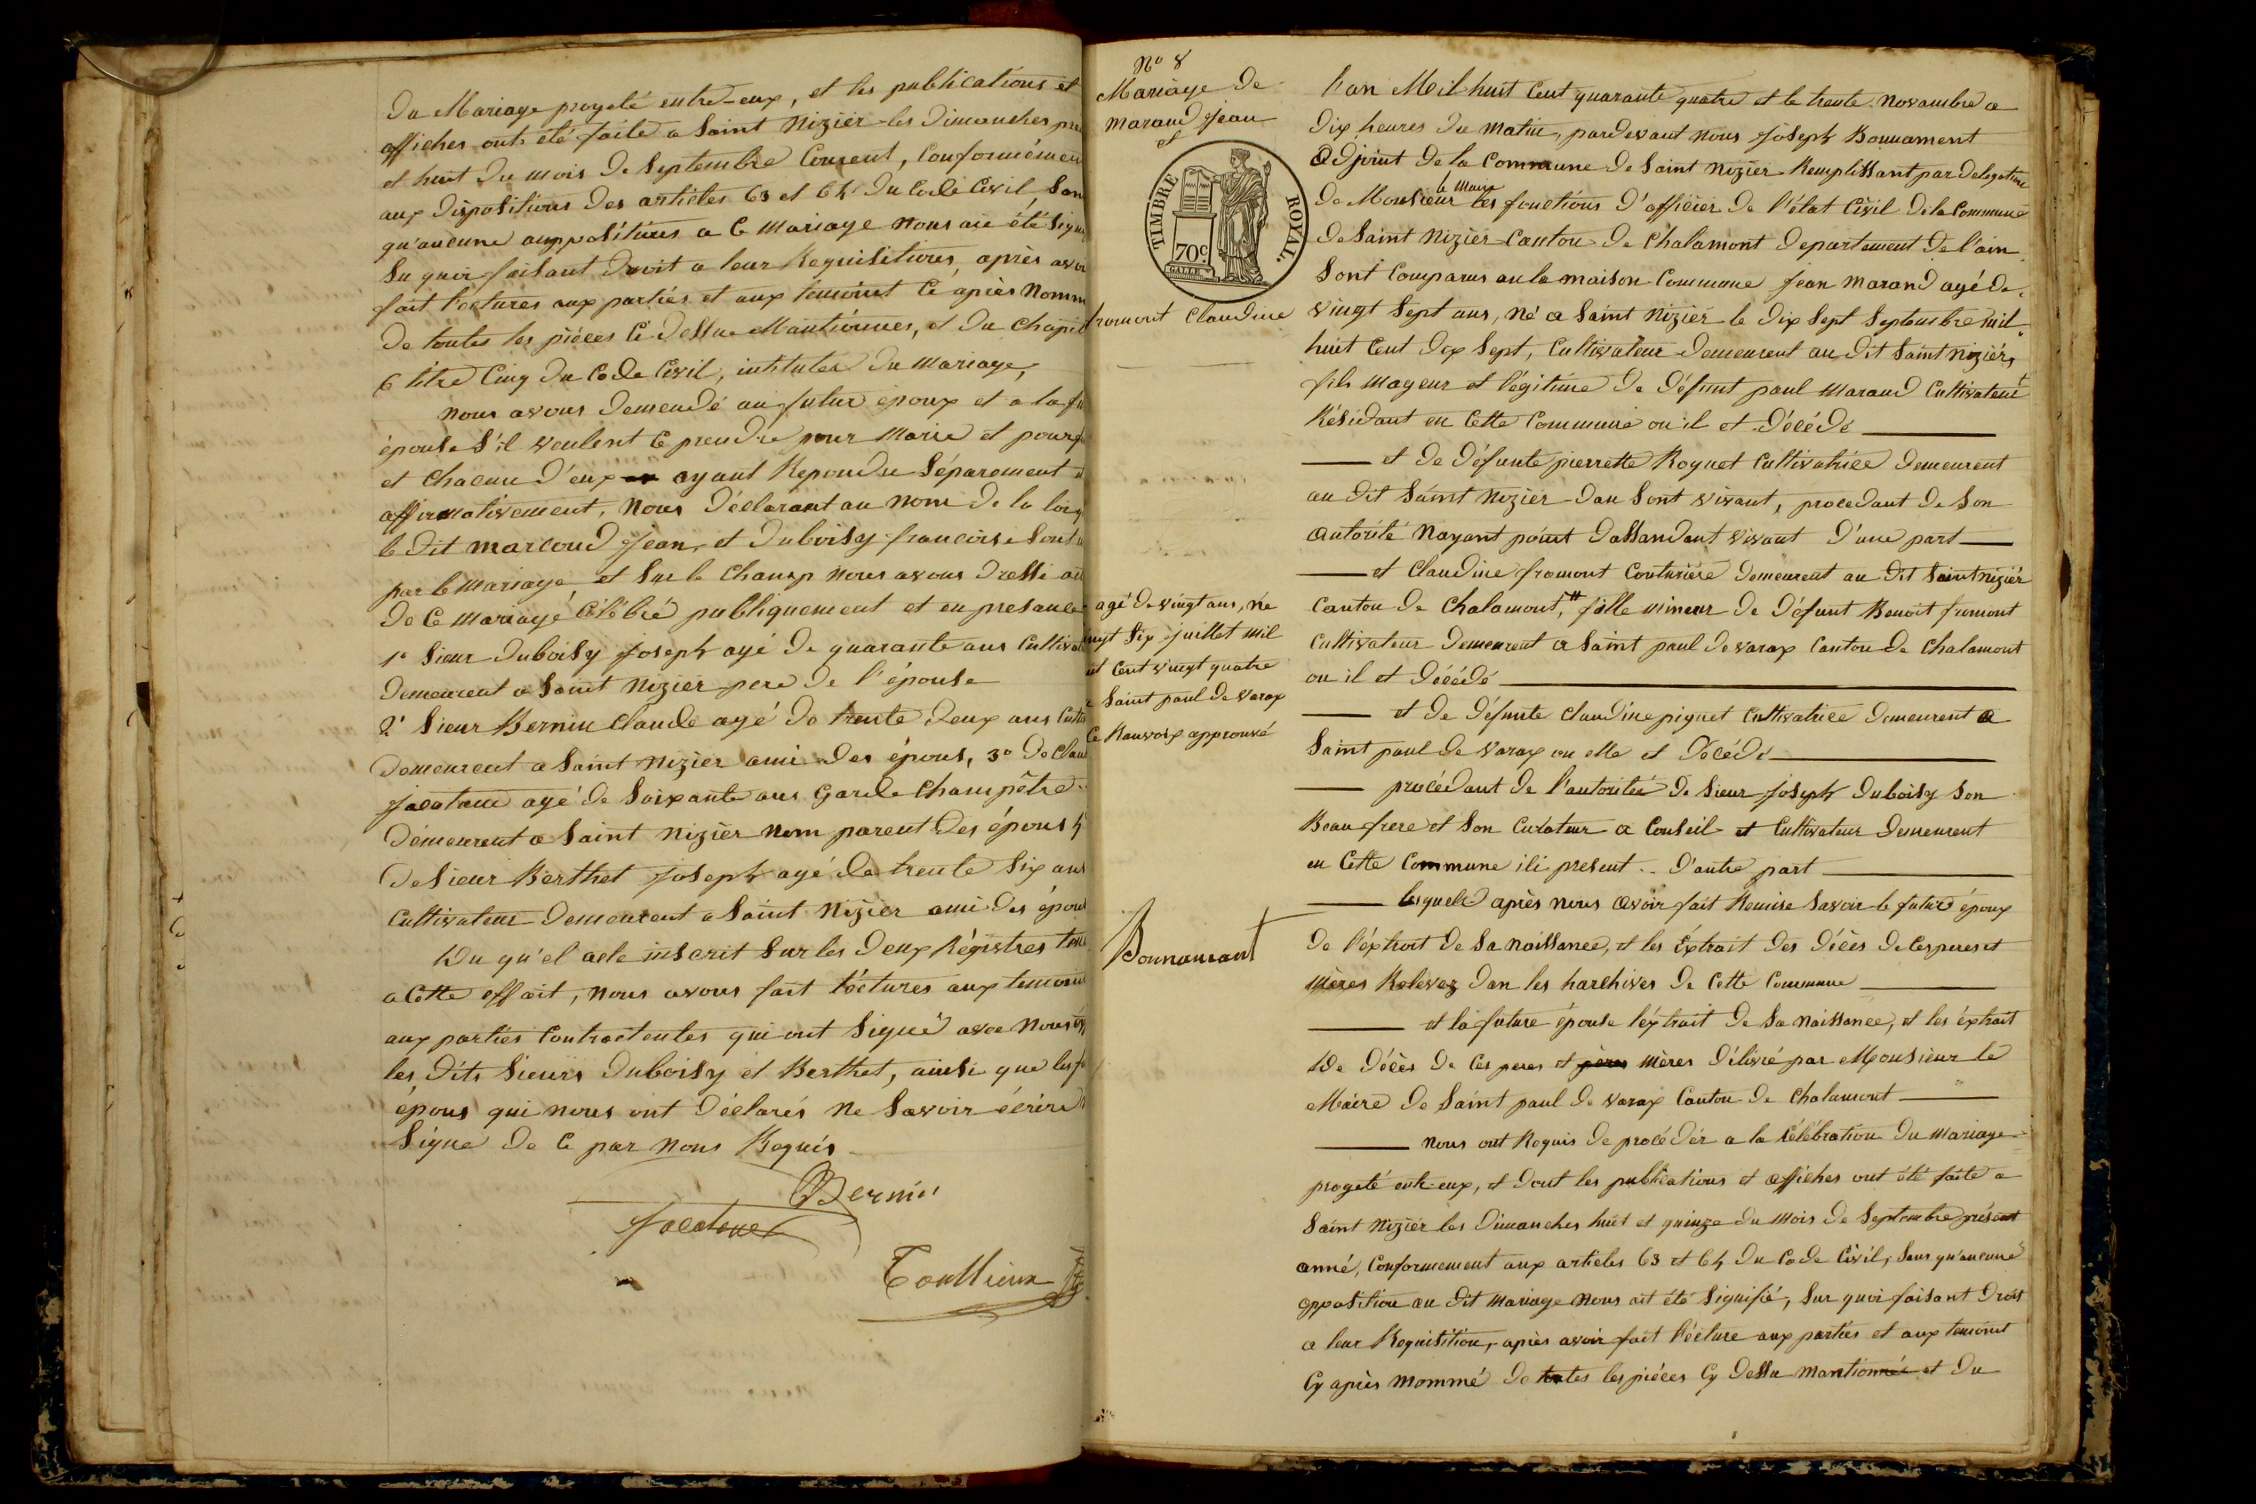 Du Mariage progeté entre-eux, et les publications et
affiches ont été faite a Saint Nizier les Dimanches
et huit Du mois De Septembre Courent, Conformément
aux Dispositions Des articles 63 et 64 Du Code Civil San
qu'aucune auppositions a Ce Mariage Nous aie été
Su quoi faisant Droit a leur Requisitions, après avoir
fait lectures aux parties et aux temoins Ce après Nomm
De toutes les pièces Ce Dessue Mantiónnes, et Du Chapit
6 titre Cinq Du Code Civil, intitulée Du Mariage,
Nous avons Demendé au futur époux et a la fu
épouse S'il veulent Ce prendre pour Marie et pour
et Chacun D'eux ayant Repondu Séparement
affirmativement, Nous Déclarant au Nom De la loi
le Dit Marcoud Jean, et Duboisy françoise Sont
par le Mariage, et Sur le Champ Nous avons Dressé
De Ce Mariage Célébré publiquement et en presance
1° Sieur Duboisy Joseph agé De quarante ans Cultiva
Demeurent a Saint Nizier pere De l'épouse
2° Sieur Bernin Claude agé De trente Deux ans
Demeurent a Saint Nizier ami Des épous, 3° De Clau
agé De Soixante ans Garde Champêtre
Demeurent a Saint Nizier Nom parent Des épous 4
De Sieur Berthet Joseph agé De trente Six ans
Cultivateur Demeurent a Saint Nizier ami Des épous
Du qu'el acte inscrit Sur les Deux Régistres
a Cette effait, Nous avons fait léctures aux temoins
aux parties Contractentes qui ont Signé avec Nous
les Dits Sieurs Duboisy et Berthet, ainsi que les
épous qui nous ont Déclarés Ne Savoir écrire
Signe De Ce par Nous Requis
Bernin
N° 8
Mariage De
Marand Jean
et
TIMBRE ROYAL.
70c
fromont Claudine
agé De vingt ans, Né
Six juillet Mil
Cent vingt quatre
Saint paul De Varax
Ce Ranvoix approuvé
Bonnamant
L'an Mil huit Cent quarante quatre et le trente Novambre a
Dix heures Du Matin, pardevant Nous Joseph Bonnament
Adjoint De la Commune De Saint Nizier Remplissant par Delegation
De Monsieur le Maire les fonctions D'officier De l'état Civil De la Commune
De Saint Nizier Canton De Chalamont Departement De l'ain
Sont Comparus au la maison Commune Jean Marand agé De
vingt Sept ans, Né a Saint Nizier le Dix Sept Septembre Mil
huit Cent Dix Sept, Cultivateur Demeurent au Dit Saint Nizier,
fils Mayeur et légitime De Défunt paul Marand Cultivateur
Résidant en Cette Commune ou il et Décédé
et De Défunte pierrette Roquet Cultivatrice Demeurent
au Dit Saint Nizier Dan Sont vivant, procedant De Son
Autorité Nayant point Dassandant vivant D'une part
et Claudine fromont Couturière Demeurent au Dit Saint Nizier
Canton De Chalamont, # fille mineur De Défunt Benoit fromont
Cultivateur Demeurent a Saint paul De varax Canton De Chalamont
ou il et Décédé
et De Défunte Claudine piquet Cultivatrice Demeurent a
Saint paul De Varax ou elle et Décédé
procédant De l'autoritée De Sieur Joseph Duboisy Son
Beau frere et Son Curateur a Conseil et Cultivateur Demeurent
en Cette Commune ili present .. D'autre part
lesquels après nous avoir fait Remise Savoir le future époux
De l'éxtrait De Sa Naissance, et les Éxtrait Des Décès De Ces peres et
Mères Relevez Dan les harchives De Cette Commune
et la future épouse l'éxtrait De Sa Naissance, et les éxtrait
De Décès De Ces peres et pères Mères Délivré par Monsieur le
Maire De Saint paul De varax Canton De Chalamont
Nous ont Requis De procéder a la Célébration Du Mariage
progeté entr-eux, et Dont les publications et affiches ont été faite a
Saint Nizier les Dimanches huit et quinze Du Mois De Septembre présent
anné, Conformement aux articles 63 et 64 Du Code Civil, Sans qu'aucune
opposition au Dit Mariage Nous ait été Signifié, Sur quoi faisant Droit
a leur Requisition, après avoir fait l'écture aux parties et aux temoins
Cy après Nommé De toutes les pièces Cy Dessu Mantionnée et Du